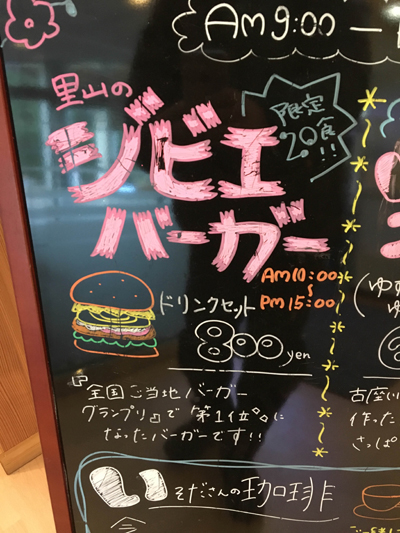 AM9:00 —
里山の
ジビエ
バーガー
限定
20食!!
AM10:00
~
PM15:00
ドリンクセット
800 yen
『全国ご当地バーガー
グランプリ』で 第1位 に
なったバーガーです!!
(ゆず
ゆ
古座川
作った
さっぱ
いそださんの珈琲